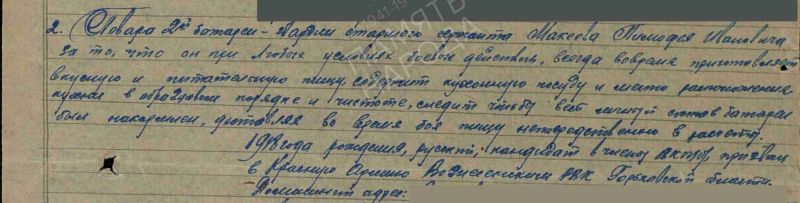 2. Повара 2й батареи - гвардии старшего сержанта Макеева Тимофея Ивановича
за то, что он при любых условиях боевых действий, всегда вовремя приготовляет
вкусную и питательную пищу, содержит кухонную посуду и место расположения
кухни в образцовом порядке и чистоте, следит чтобы весь личный состав батареи
был накормлен, доставляя во время боя пищу непосредственно к расчету.
1918 года рождения, русский, кандидат в члены ВКП(б), призван
в Красную Армию Вознесенским РВК Горьковской области.
Домашний адрес:
ПАМЯТЬ
НАРОДА